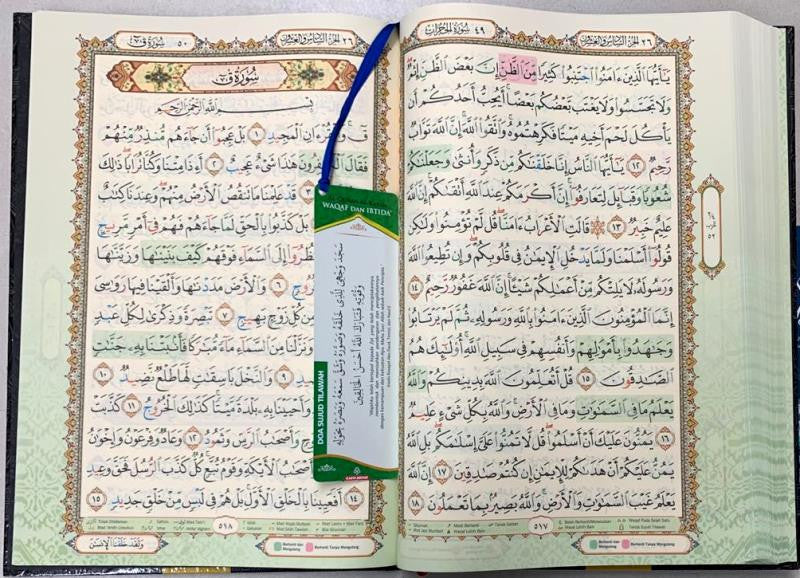 ٤٩ سُورَةُ الحُجُرَات
٢٦ الجُزْءُ السَّادِسُ وَالعِشْرُونَ
يَٰٓأَيُّهَا ٱلَّذِينَ ءَامَنُوا۟ ٱجْتَنِبُوا۟ كَثِيرًا مِّنَ ٱلظَّنِّ إِنَّ بَعْضَ ٱلظَّنِّ إِثْمٌ
وَلَا تَجَسَّسُوا۟ وَلَا يَغْتَب بَّعْضُكُم بَعْضًا أَيُحِبُّ أَحَدُكُمْ أَن
يَأْكُلَ لَحْمَ أَخِيهِ مَيْتًا فَكَرِهْتُمُوهُ وَٱتَّقُوا۟ ٱللَّهَ إِنَّ ٱللَّهَ تَوَّابٌ
رَّحِيمٌ ١٢ يَٰٓأَيُّهَا ٱلنَّاسُ إِنَّا خَلَقْنَٰكُم مِّن ذَكَرٍ وَأُنثَىٰ وَجَعَلْنَٰكُمْ
شُعُوبًا وَقَبَآئِلَ لِتَعَارَفُوٓا۟ إِنَّ أَكْرَمَكُمْ عِندَ ٱللَّهِ أَتْقَىٰكُمْ إِنَّ ٱللَّهَ
عَلِيمٌ خَبِيرٌ ١٣ قَالَتِ ٱلْأَعْرَابُ ءَامَنَّا قُل لَّمْ تُؤْمِنُوا۟ وَلَٰكِن
قُولُوٓا۟ أَسْلَمْنَا وَلَمَّا يَدْخُلِ ٱلْإِيمَٰنُ فِى قُلُوبِكُمْ وَإِن تُطِيعُوا۟ ٱللَّهَ
وَرَسُولَهُۥ لَا يَلِتْكُم مِّنْ أَعْمَٰلِكُمْ شَيْـًٔا إِنَّ ٱللَّهَ غَفُورٌ رَّحِيمٌ ١٤
إِنَّمَا ٱلْمُؤْمِنُونَ ٱلَّذِينَ ءَامَنُوا۟ بِٱللَّهِ وَرَسُولِهِۦ ثُمَّ لَمْ يَرْتَابُوا۟
وَجَٰهَدُوا۟ بِأَمْوَٰلِهِمْ وَأَنفُسِهِمْ فِى سَبِيلِ ٱللَّهِ أُو۟لَٰٓئِكَ هُمُ
ٱلصَّٰدِقُونَ ١٥ قُلْ أَتُعَلِّمُونَ ٱللَّهَ بِدِينِكُمْ وَٱللَّهُ
يَعْلَمُ مَا فِى ٱلسَّمَٰوَٰتِ وَمَا فِى ٱلْأَرْضِ وَٱللَّهُ بِكُلِّ شَىْءٍ عَلِيمٌ
١٦ يَمُنُّونَ عَلَيْكَ أَنْ أَسْلَمُوا۟ قُل لَّا تَمُنُّوا۟ عَلَىَّ إِسْلَٰمَكُم بَلِ ٱللَّهُ
يَمُنُّ عَلَيْكُمْ أَنْ هَدَىٰكُمْ لِلْإِيمَٰنِ إِن كُنتُمْ صَٰدِقِينَ ١٧ إِنَّ ٱللَّهَ
يَعْلَمُ غَيْبَ ٱلسَّمَٰوَٰتِ وَٱلْأَرْضِ وَٱللَّهُ بَصِيرٌۢ بِمَا تَعْمَلُونَ ١٨
٥١٧
Berhenti dan Mengulang
Berhenti Tanpa Mengulang
٥٠ سُورَةُ ق
٢٦ الجُزْءُ السَّادِسُ وَالعِشْرُونَ
سُورَةُ ق
بِسْمِ ٱللَّهِ ٱلرَّحْمَٰنِ ٱلرَّحِيمِ
ق وَٱلْقُرْءَانِ ٱلْمَجِيدِ ١ بَلْ عَجِبُوٓا۟ أَن جَآءَهُم مُّنذِرٌ مِّنْهُمْ
فَقَالَ ٱلْكَٰفِرُونَ هَٰذَا شَىْءٌ عَجِيبٌ ٢ أَءِذَا مِتْنَا وَكُنَّا تُرَابًا ذَٰلِكَ
٣ قَدْ عَلِمْنَا مَا تَنقُصُ ٱلْأَرْضُ مِنْهُمْ وَعِندَنَا كِتَٰبٌ
بَلْ كَذَّبُوا۟ بِٱلْحَقِّ لَمَّا جَآءَهُمْ فَهُمْ فِىٓ أَمْرٍ مَّرِيجٍ
إِلَى ٱلسَّمَآءِ فَوْقَهُمْ كَيْفَ بَنَيْنَٰهَا وَزَيَّنَّٰهَا
٦ وَٱلْأَرْضَ مَدَدْنَٰهَا وَأَلْقَيْنَا فِيهَا رَوَٰسِىَ
مِن كُلِّ زَوْجٍۭ بَهِيجٍ ٧ تَبْصِرَةً وَذِكْرَىٰ لِكُلِّ عَبْدٍ
وَنَزَّلْنَا مِنَ ٱلسَّمَآءِ مَآءً مُّبَٰرَكًا فَأَنۢبَتْنَا بِهِۦ جَنَّٰتٍ
٩ وَٱلنَّخْلَ بَاسِقَٰتٍ لَّهَا طَلْعٌ نَّضِيدٌ ١٠
وَأَحْيَيْنَا بِهِۦ بَلْدَةً مَّيْتًا كَذَٰلِكَ ٱلْخُرُوجُ ١١ كَذَّبَتْ
وَأَصْحَٰبُ ٱلرَّسِّ وَثَمُودُ ١٢ وَعَادٌ وَفِرْعَوْنُ وَإِخْوَٰنُ
أَصْحَٰبُ ٱلْأَيْكَةِ وَقَوْمُ تُبَّعٍ كُلٌّ كَذَّبَ ٱلرُّسُلَ فَحَقَّ وَعِيدِ
١٤ أَفَعَيِينَا بِٱلْخَلْقِ ٱلْأَوَّلِ بَلْ هُمْ فِى لَبْسٍ مِّنْ خَلْقٍ جَدِيدٍ ١٥
٥١٨
وَلَقَدْ خَلَقْنَا ٱلْإِنسَٰنَ
Berhenti dan Mengulang
Berhenti Tanpa Mengulang
WAQAF DAN IBTIDA'
DOA SUJUD TILAWAH
سَجَدَ وَجْهِيَ لِلَّذِي خَلَقَهُ وَصَوَّرَهُ وَشَقَّ سَمْعَهُ وَبَصَرَهُ بِحَوْلِهِ
وَقُوَّتِهِ فَتَبَارَكَ اللَّهُ أَحْسَنُ الْخَالِقِينَ